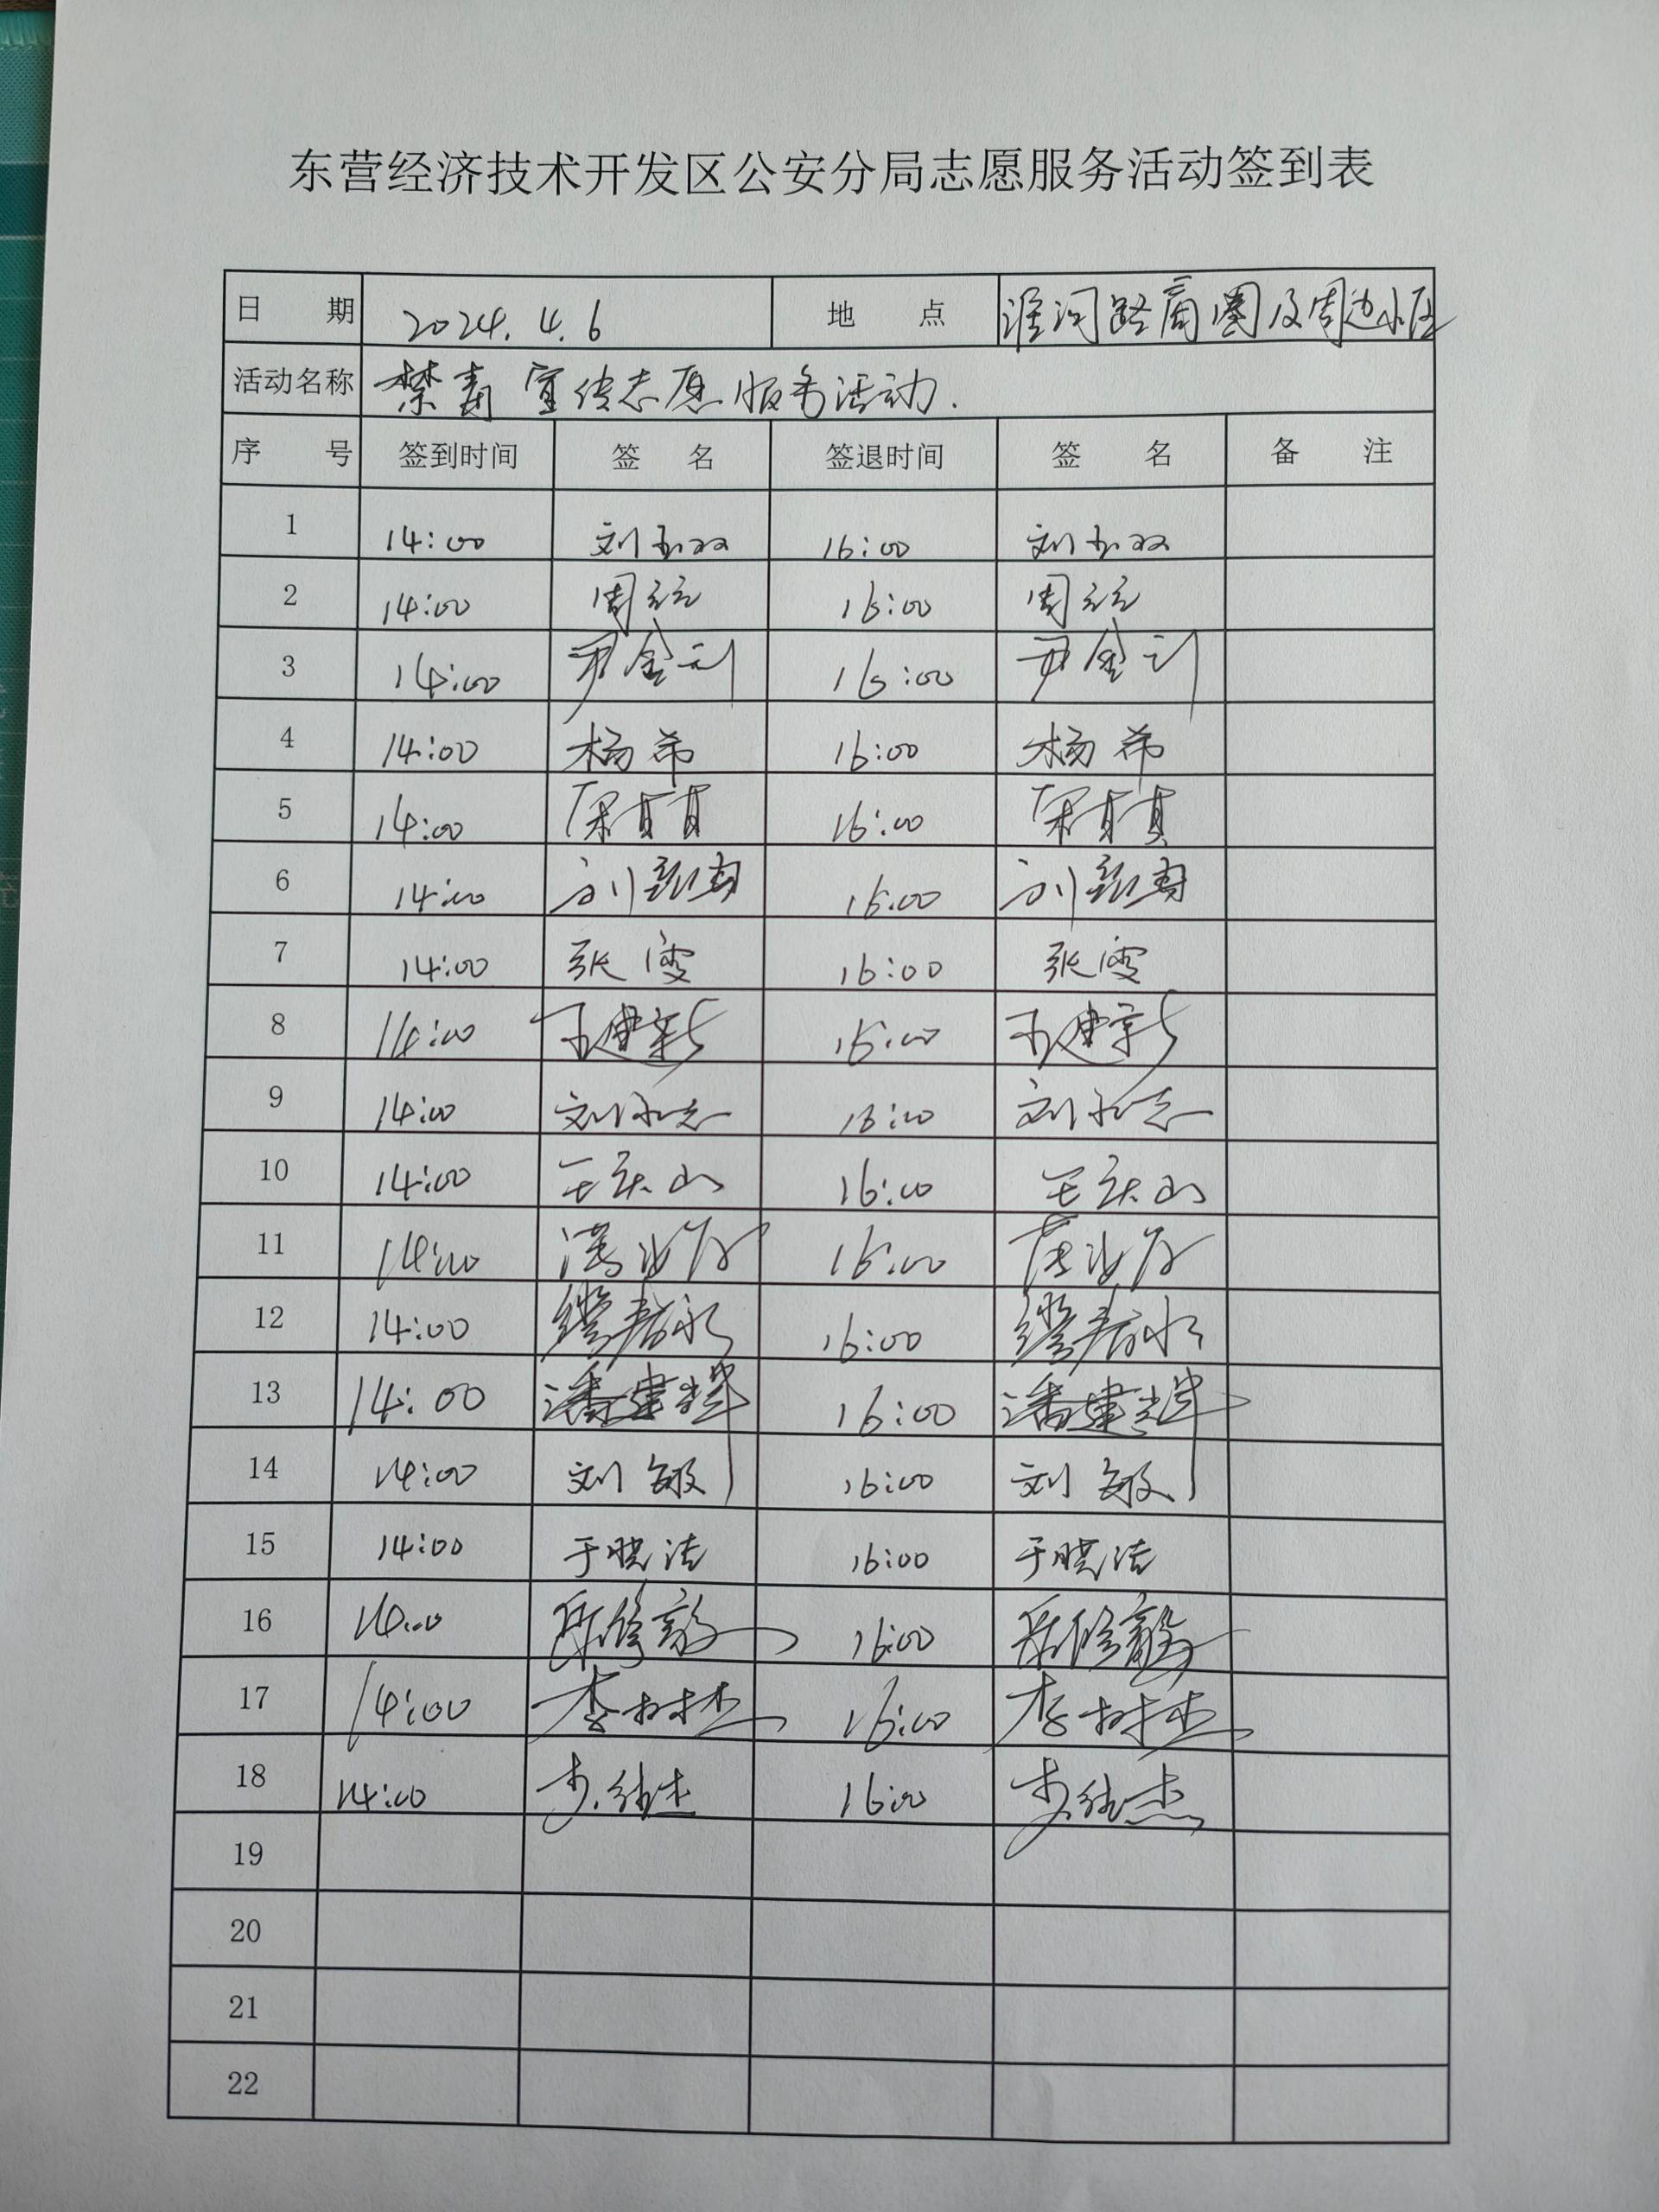 东营经济技术开发区公安分局志愿服务活动签到表
日 期 2024.4.6 地 点 淮河路商圈及周边小区
活动名称 禁毒宣传志愿服务活动.
序 号 签到时间 签 名 签退时间 签 名 备 注
1 14:00 刘玉双 16:00 刘玉双
2 14:00 周 16:00 周
3 14:00 尹金利 16:00 尹金利
4 14:00 杨希 16:00 杨希
5 14:00 16:00
6 14:00 刘 16:00 刘
7 14:00 张雯 16:00 张雯
8 14:00 王建新 16:00 王建新
9 14:00 刘永志 16:00 刘永志
10 14:00 王庆山 16:00 王庆山
11 14:00 16:00
12 14:00 缪春永 16:00 缪春永
13 14:00 潘建辉 16:00 潘建辉
14 14:00 刘敏 16:00 刘敏
15 14:00 于晓洁 16:00 于晓洁
16 14:00 16:00
17 14:00 李树杰 16:00 李树杰
18 14:00 16:00
19
20
21
22